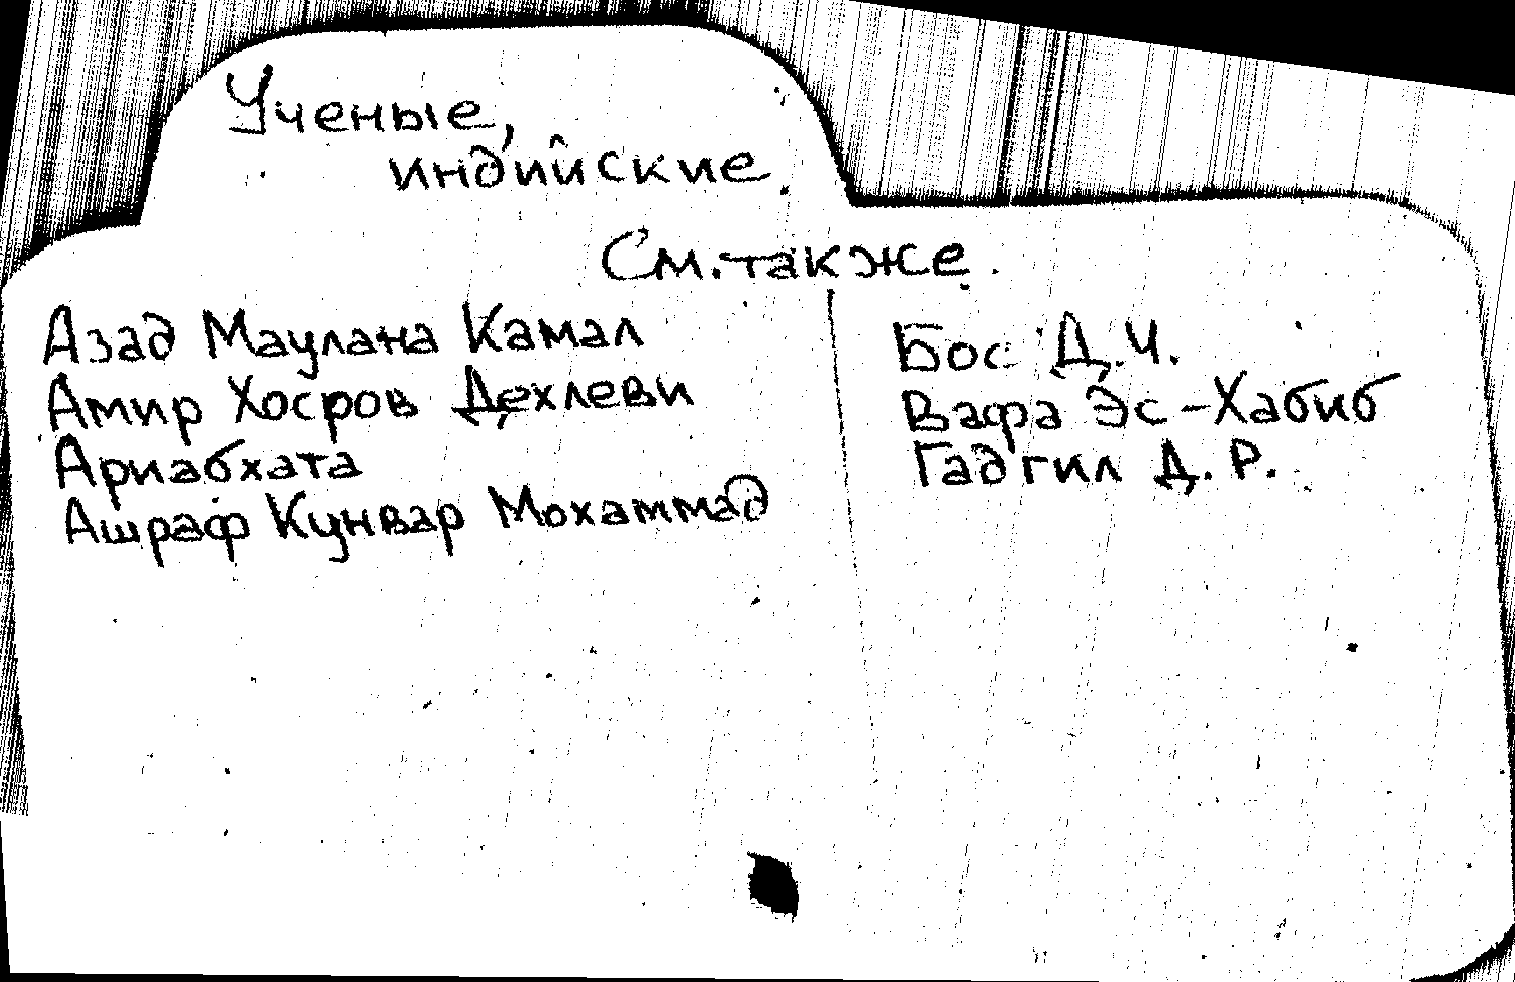 Ученые,
индийские
См. также
Азад Маулана Камал
Амир Хосров Дехлеви
Ариабхата
Ашраф Кунвар Мохаммад
Бос Д.Ч.
Вафа Эс-Хабиб
Гадгил Д.Р.